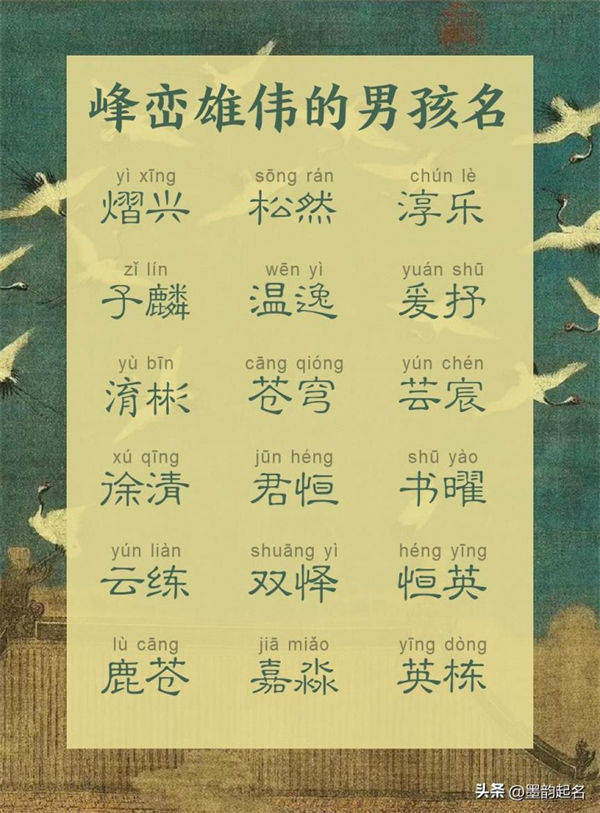 峰峦雄伟的男孩名
yì xīng sōng rán chún lè
熠兴 松然 淳乐
zǐ lín wēn yì yuán shū
子麟 温逸 爰抒
yù bīn cāng qióng yún chén
淯彬 苍穹 芸宸
xú qīng jūn héng shū yào
徐清 君恒 书曜
yún liàn shuāng yì héng yīng
云练 双怿 恒英
lù cāng jiā miǎo yīng dòng
鹿苍 嘉淼 英栋
头条 @墨韵起名